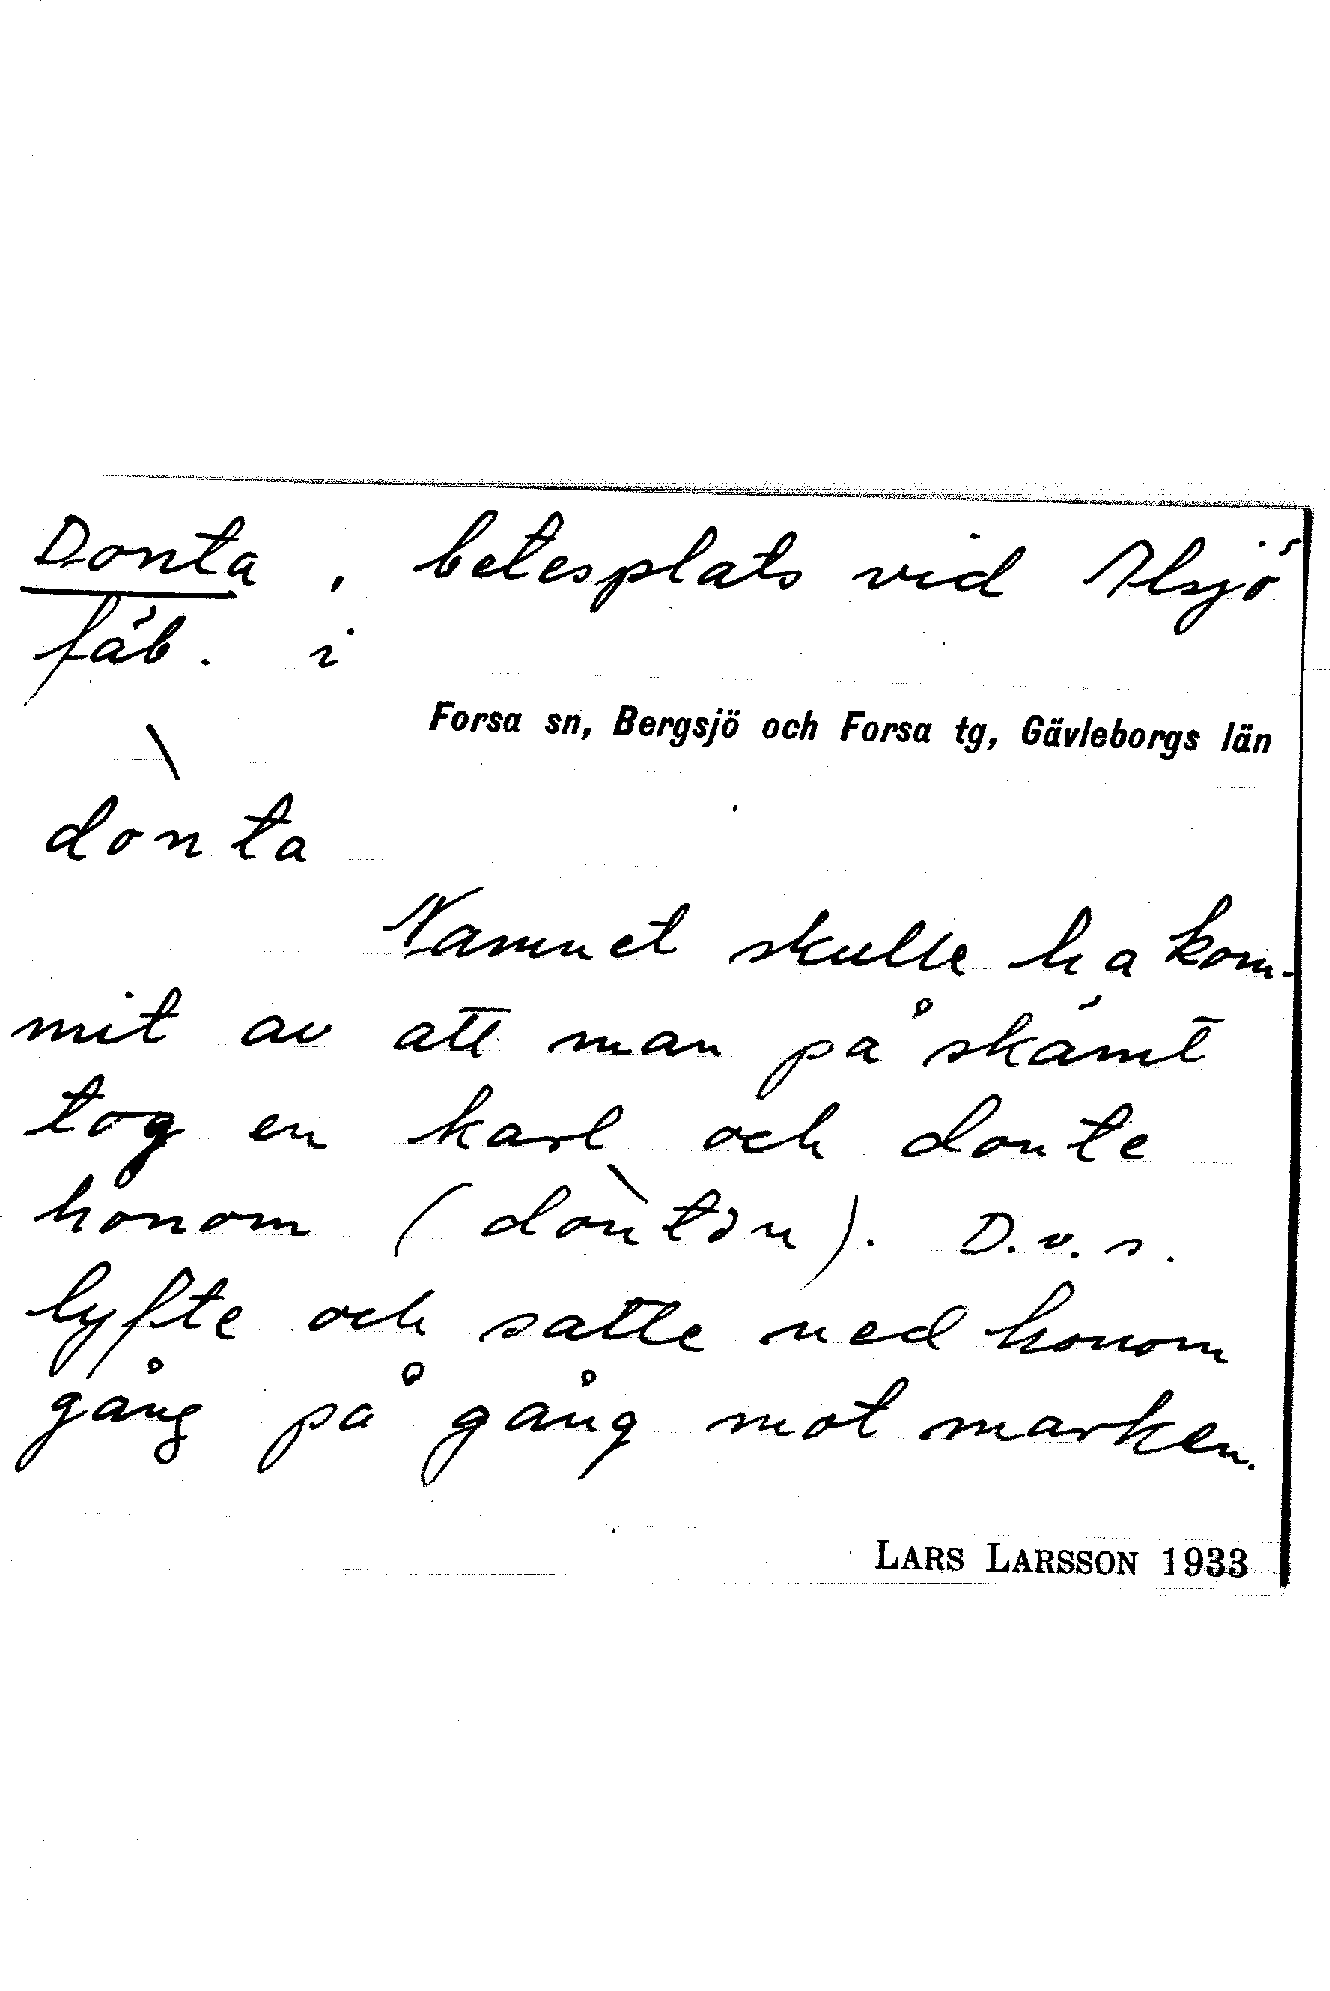 Donta, betesplats vid Ilsjö
fäb. i
Forsa sn, Bergsjö och Forsa tg, Gävleborgs län
dòn ta
Namnet skulle ha kom-
mit av att man på skämt
tog en karl och donte
honom (dòntən). D.v.s.
lyfte och satte ned honom
gång på gång mot marken.
LARS LARSSON 1933